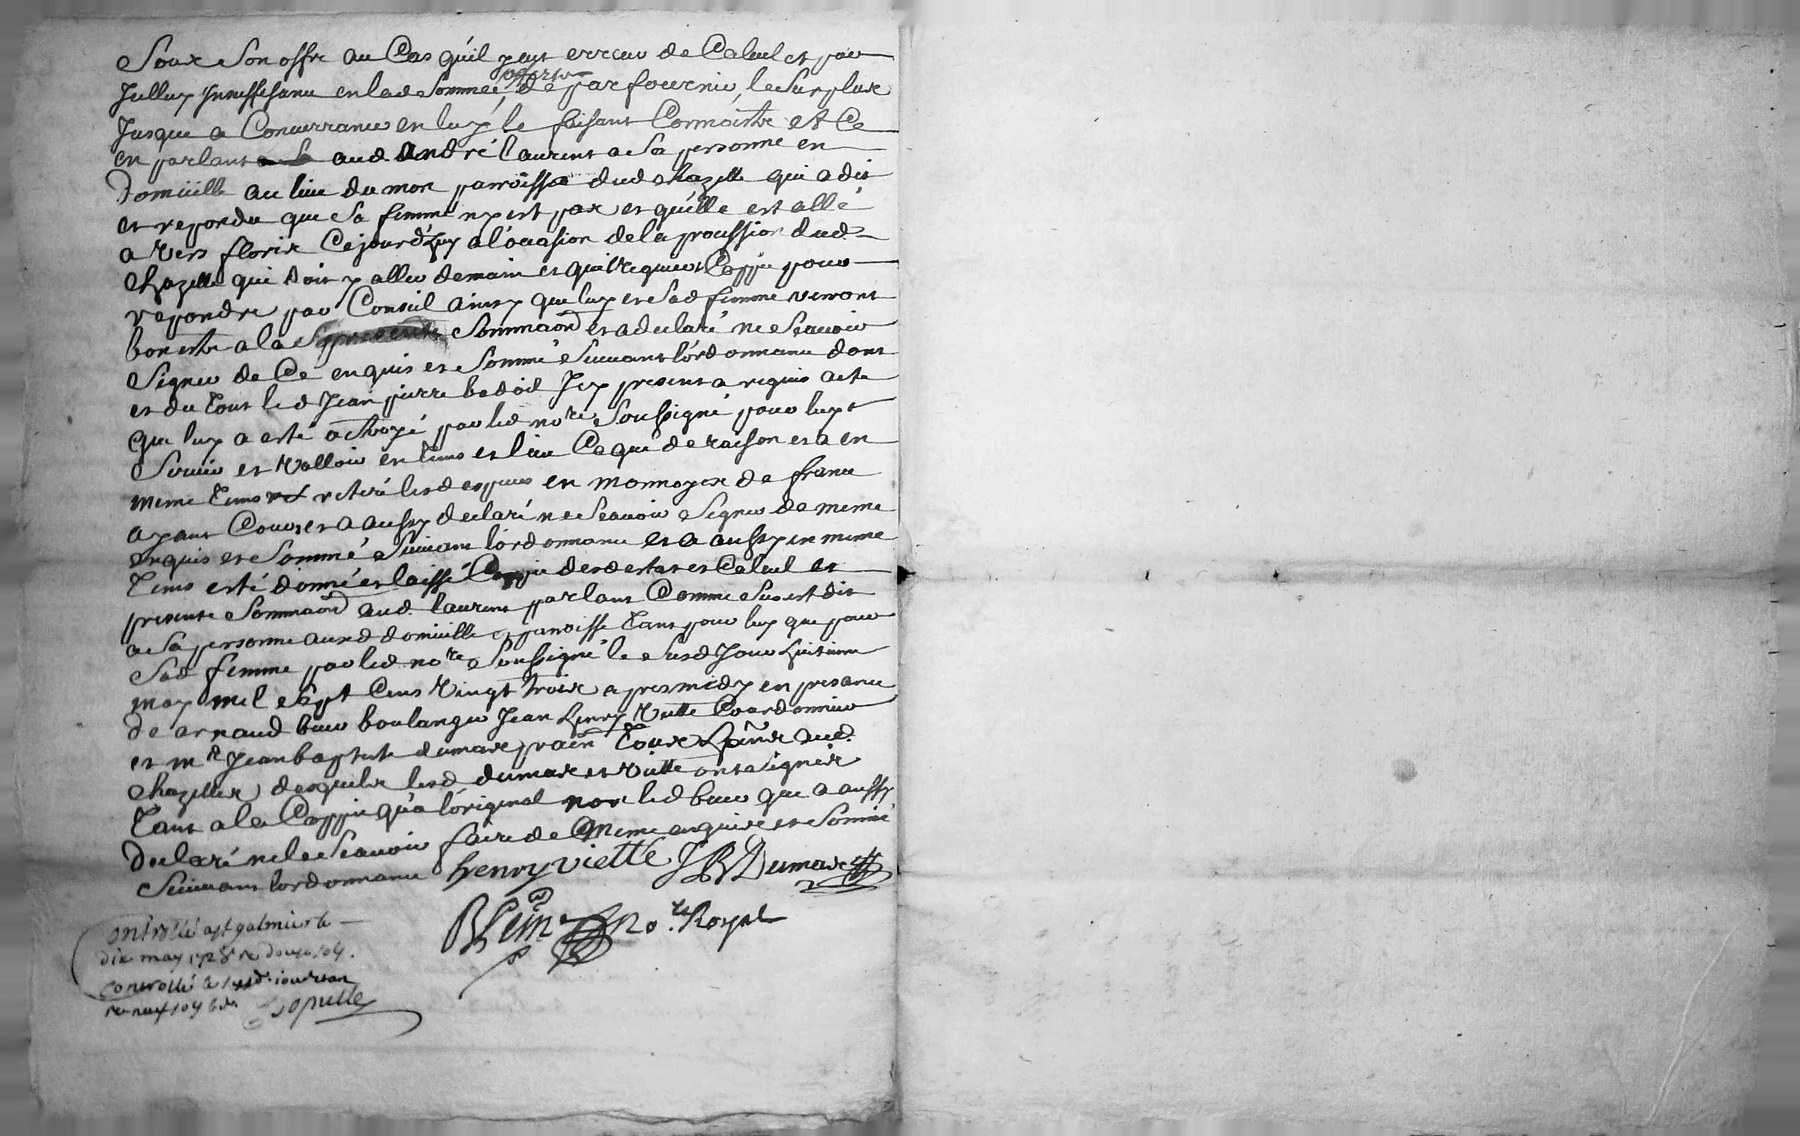 Soux Son offre au Cas quil y eut erreur de Calcul et par
Jelluy Insuffisance en lad Somme offerte de parfournir, le Surplux
Jusque a Concurrance en luy le faisant Connoistre et Ce
en parlant aud. André laurent a Sa personne en
Domicille au lieu du mon parroisse dud chazelle qui a dit
et repondu que Sa femme ny est pax et quélle est allé
a Vers florix Cejourdhuy a l'ócasion de la proussion dud.
chazelle qui doit y aller demain et qui Requiert Coppie pour
repondre par Conseil ainsy que luy et Sad femme verront
bon estre a la presente Sommaon et a declaré ne Scauoir
Signer de Ce enquis et Sommé Suiuant lórdonnance dont
et du tout led Jean pierre bedoil Icy present a requis acte
que luy a esté octroyé par led nore Soussigné pour luy
Seruir et Valloir en tems et lieu Ce que de raison et a en
meme tems retiré lesd especes en monnoyex de france
ayant Cours et a aussy declaré ne Scauoir Signer de meme
enquis et Sommé Suiuant lordonnance et a aussy en meme
tems esté donné et laissé Coppie desd estat et Calcul et
presente Sommaon aud. laurent parlant Comme Sus est dit
a Sa personne auxd domicille et parroisse tant pour luy que pour
Sad femme par led nore Soussigné le Susd Jour huitieme
may mil Sept Cens Vingt troix apres midy en presence
de arnaud buer boulanger Jean henry Viette Coordonnier
et mr Jean baptiste dumax praen toux hans dud.
chazellex desquelx lesd dumax et Viette ont Signéx
tant a la Coppie quá lóriginal non led buer que a aussy
declaré ne le Scauoir faire de Meme enquix et Sommé
Suiuant lordonnance henry viette J B Dumax
No.re Royal
Controllé a st galmier le
dix may
controllé